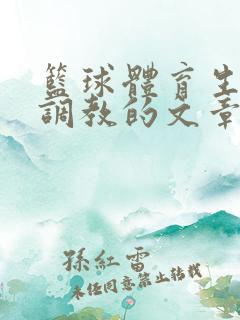 籃球體育生
調教的文章
孫紅雷
未任同意禁止轉載